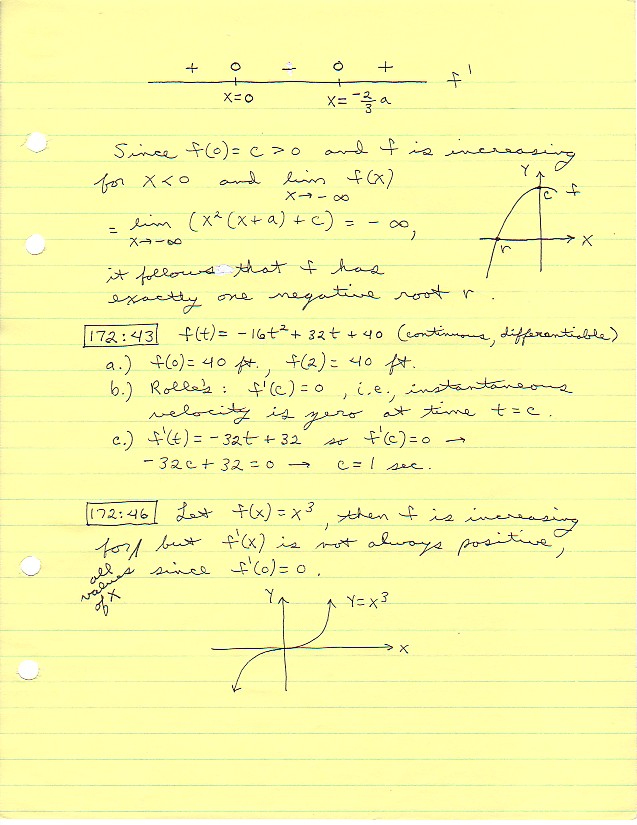 + 0 - 0 + f'
x=0 x=-2/3 a
Since f(0)= c > 0 and f is increasing
for x<0 and lim f(x)
x→-∞
= lim (x²(x+a)+c) = -∞,
x→-∞
it follows that f has
exactly one negative root r.
Y
c f
r X
172:43 f(t)= -16t²+32t+40 (continuous, differentiable)
a.) f(0)=40 ft., f(2)= 40 ft.
b.) Rolle's: f'(c)=0, i.e., instantaneous
velocity is zero at time t=c.
c.) f'(t)=-32t+32 so f'(c)=0 →
-32c+32=0 → c=1 sec.
172:46 Let f(x)=x³, then f is increasing
for all values of x but f'(x) is not always positive,
since f'(0)=0.
Y Y=X³
X